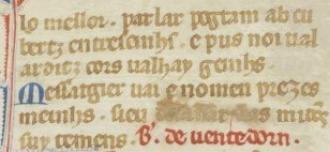 lo mellor. parlar pogram ab cu
bertz entreseinhs. e pus noi ual
arditz cors ualhay geinhs.
Messatgier uai e nomen prezes
meinhs. sieu
suy temens. B. de uentedorn.